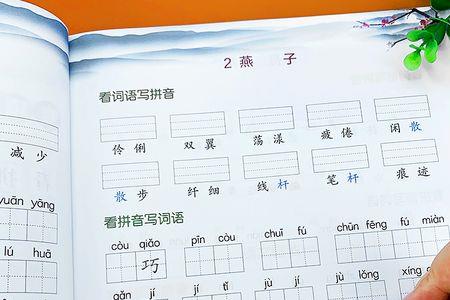 减 少
uān yāng
lú huā
2 燕 子
看词语写拼音
伶 俐 双 翼 荡 漾 疲 倦 闲 散
散 步 纤 细 线 杆 笔 杆 痕 迹
看拼音写词语
còu qiǎo pīn còu chuī fú chūn fēng fú miàn
巧
gǎn jí jì jù lǒng xíng